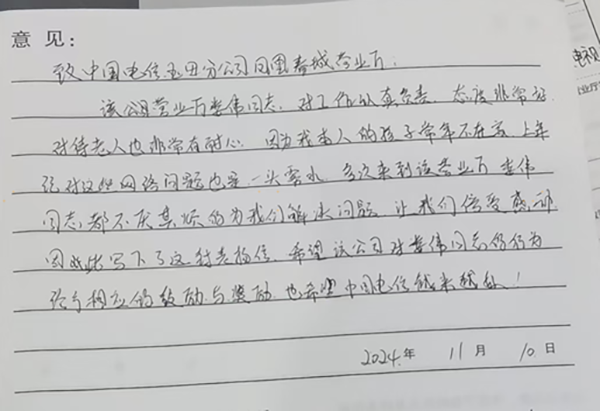 意 见：
致中国电信玉田分公司凤凰春城营业厅：
该公司营业厅娄伟同志，对工作认真负责，态度非常好
对待老人也非常有耐心，因为我本人的孩子常年不在家，上年
纪对这些网络问题也是一头雾水，多次来到该营业厅 娄伟
同志都不厌其烦的为我们解决问题，让我们倍受感动
因此写下了这封表扬信，希望该公司对娄伟同志的行为
给予相应的鼓励与奖励，也希望中国电信越来越好！
2024年 11月 10日
电视